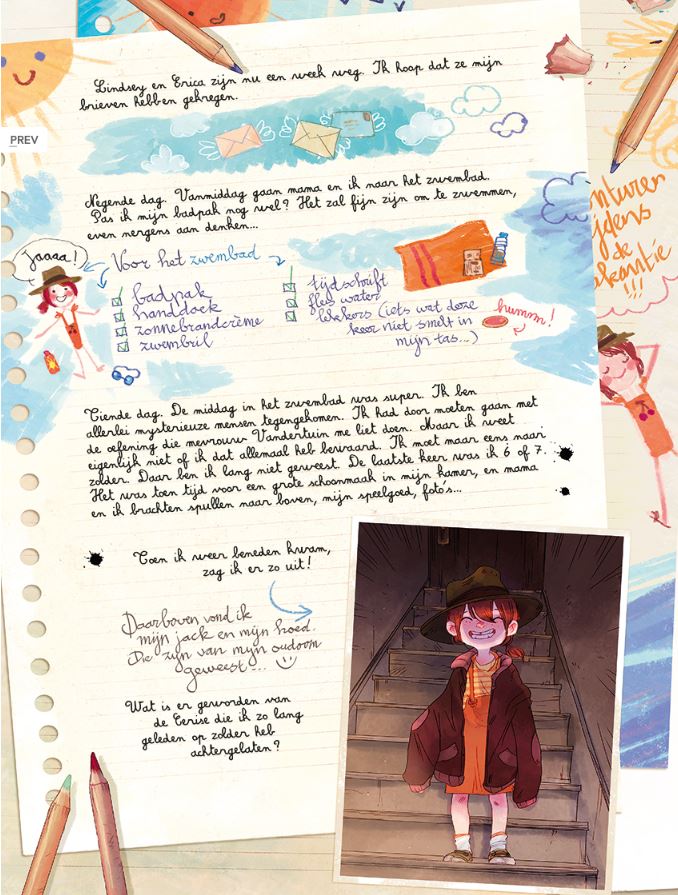 Lindsey en Erica zijn nu een week weg. Ik hoop dat ze mijn
brieven hebben gekregen.
PREV
Negende dag. Vanmiddag gaan mama en ik naar het zwembad.
Pas ik mijn badpak nog wel? Het zal fijn zijn om te zwemmen,
even nergens aan denken...
Jaaaa!
Voor het zwembad
badpak
handdoek
zonnebrandcrème
zwembril
tijdschrift
fles water
lekkers (iets wat deze
keer niet smelt in
mijn tas...)
hummm!
Tiende dag. De middag in het zwembad was super. Ik ben
allerlei mysterieuze mensen tegengekomen. Ik had door moeten gaan met
de oefening die mevrouw Vandertuin me liet doen. Maar ik weet
eigenlijk niet of ik dat allemaal heb bewaard. Ik moet maar eens naar
zolder. Daar ben ik lang niet geweest. De laatste keer was ik 6 of 7.
Het was toen tijd voor een grote schoonmaak in mijn kamer, en mama
en ik brachten spullen naar boven, mijn speelgoed, foto's...
Toen ik weer beneden kwam,
zag ik er zo uit!
Daarboven vond ik
mijn jack en mijn hoed.
Die zijn van mijn oudoom
geweest...
Wat is er geworden van
de Cerise die ik zo lang
geleden op zolder heb
achtergelaten?
de
!!!